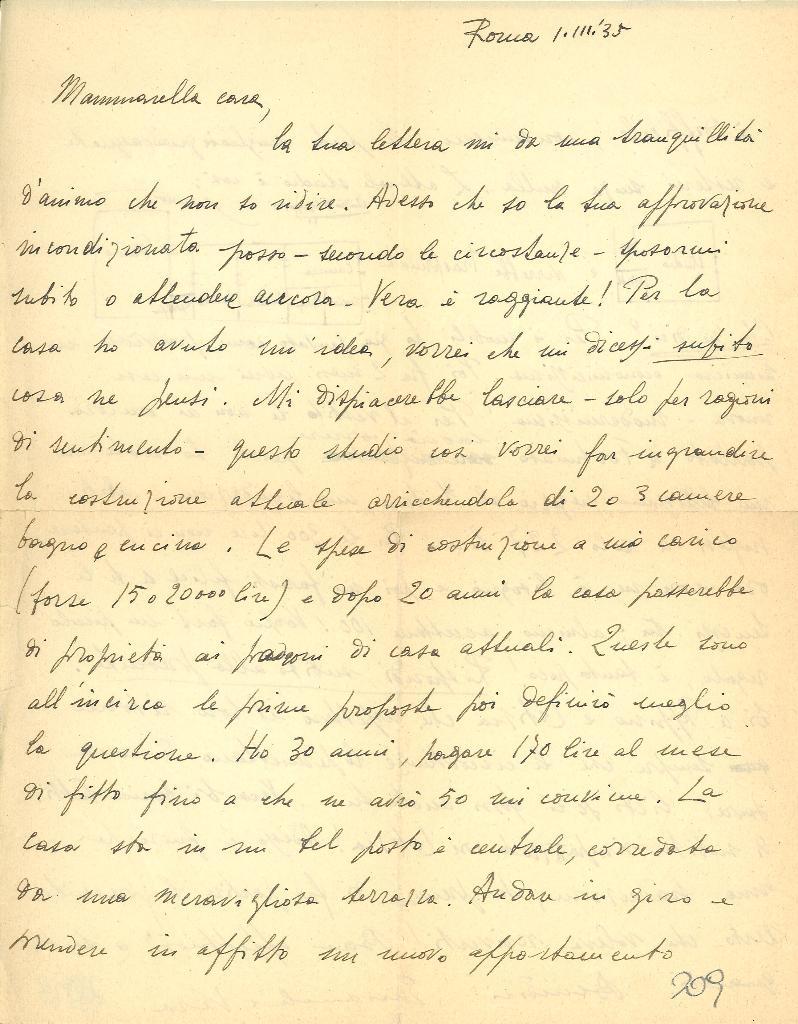 Roma 1.III.'35
Mammarella cara,
la tua lettera mi da una tranquillità
d'animo che non so ridire. Adesso che so la tua approvazione
incondizionata posso – secondo le circostanze – sposarmi
subito o attendere ancora – Vera è raggiante! Per la
casa ho avuto un'idea, vorrei che mi dicessi subito
cosa ne pensi. Mi dispiacerebbe lasciare – solo per ragioni
di sentimento – questo studio così vorrei far ingrandire
la costruzione attuale arricchendola di 2 o 3 camere
bagno e cucina. Le spese di costruzione a mio carico
(forse 15 o 20000 lire) e dopo 20 anni la casa passerebbe
di proprietà ai padroni di casa attuali. Queste sono
all'incirca le prime proposte poi definirò meglio
la questione. Ho 30 anni, pagare 170 lire al mese
di fitto fino a che ne avrò 50 mi conviene. La
casa sta in un bel posto è centrale, corredata
da una meravigliosa terrazza. Andare in giro e
prendere in affitto un nuovo appartamento
209